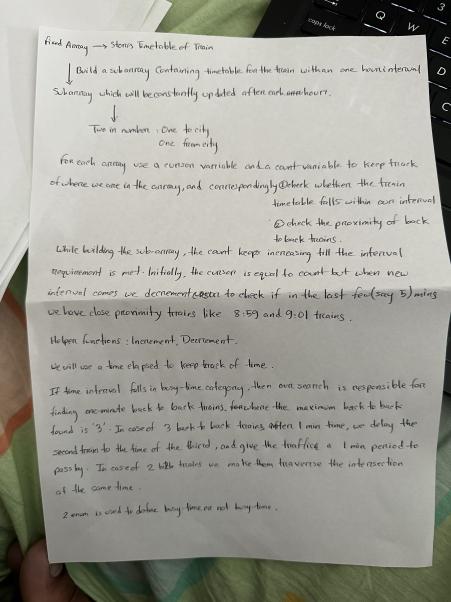 Fixed Array → Stores Timetable of Train
Build a subarray containing timetable for the train within one hour interval
Subarray which will be constantly updated after each hours.
Two in number : One to city
One from city
For each array use a cursor variable and a count variable to keep track
of where we are in the array, and correspondingly ① check whether the train
timetable falls within our interval
② check the proximity of back
to back trains.
While building the sub-array, the count keeps increasing till the interval
requirement is met. Initially, the cursor is equal to count but when new
interval comes we decrement to check if in the last few (say 5) mins
we have close proximity trains like 8:59 and 9:01 trains.
Helper functions : Increment, Decrement.
We will use a time elapsed to keep track of time.
If time interval falls in busy-time category, then our search is responsible for
finding one-minute back to back trains, where the maximum back to back
found is '3'. In case of 3 back to back trains after 1 min time, we delay the
second train to the time of the third, and give the traffic a 1 min period to
pass by. In case of 2 trains we make them traverse the intersection
at the same time.
2 enum is used to define busy-time or not busy-time.
caps lock
Q
W
3
E
D
C